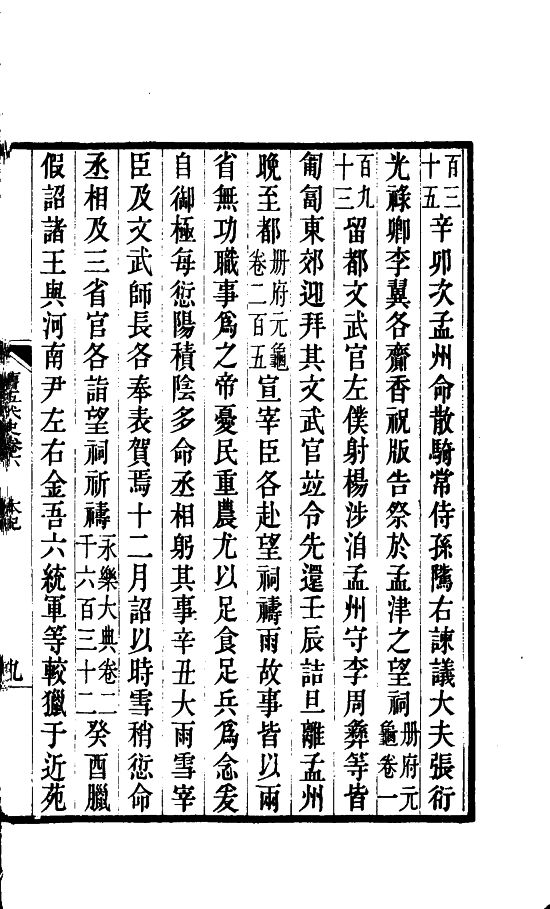 百三十五辛卯次孟州命散騎常侍孫隲右諫議大夫張衍
光祿卿李翼各齎香祝版告祭於孟津之望祠冊府元龜卷一
百九十三留都文武官左僕射楊涉洎孟州守李周彝等皆
匍匐東郊迎拜其文武官竝令先還壬辰詰旦離孟州
晚至都冊府元龜卷二百五宣宰臣各赴望祠禱雨故事皆以兩
省無功職事爲之帝憂民重農尤以足食足兵爲念爰
自御極每愆陽積陰多命丞相躬其事辛丑大雨雪宰
臣及文武師長各奉表賀焉十二月詔以時雪稍愆命
丞相及三省官各詣望祠祈禱永樂大典卷二千六百三十二癸酉臘
假詔諸王與河南尹左右金吾六統軍等較獵于近苑
舊五代史卷六
本紀
九